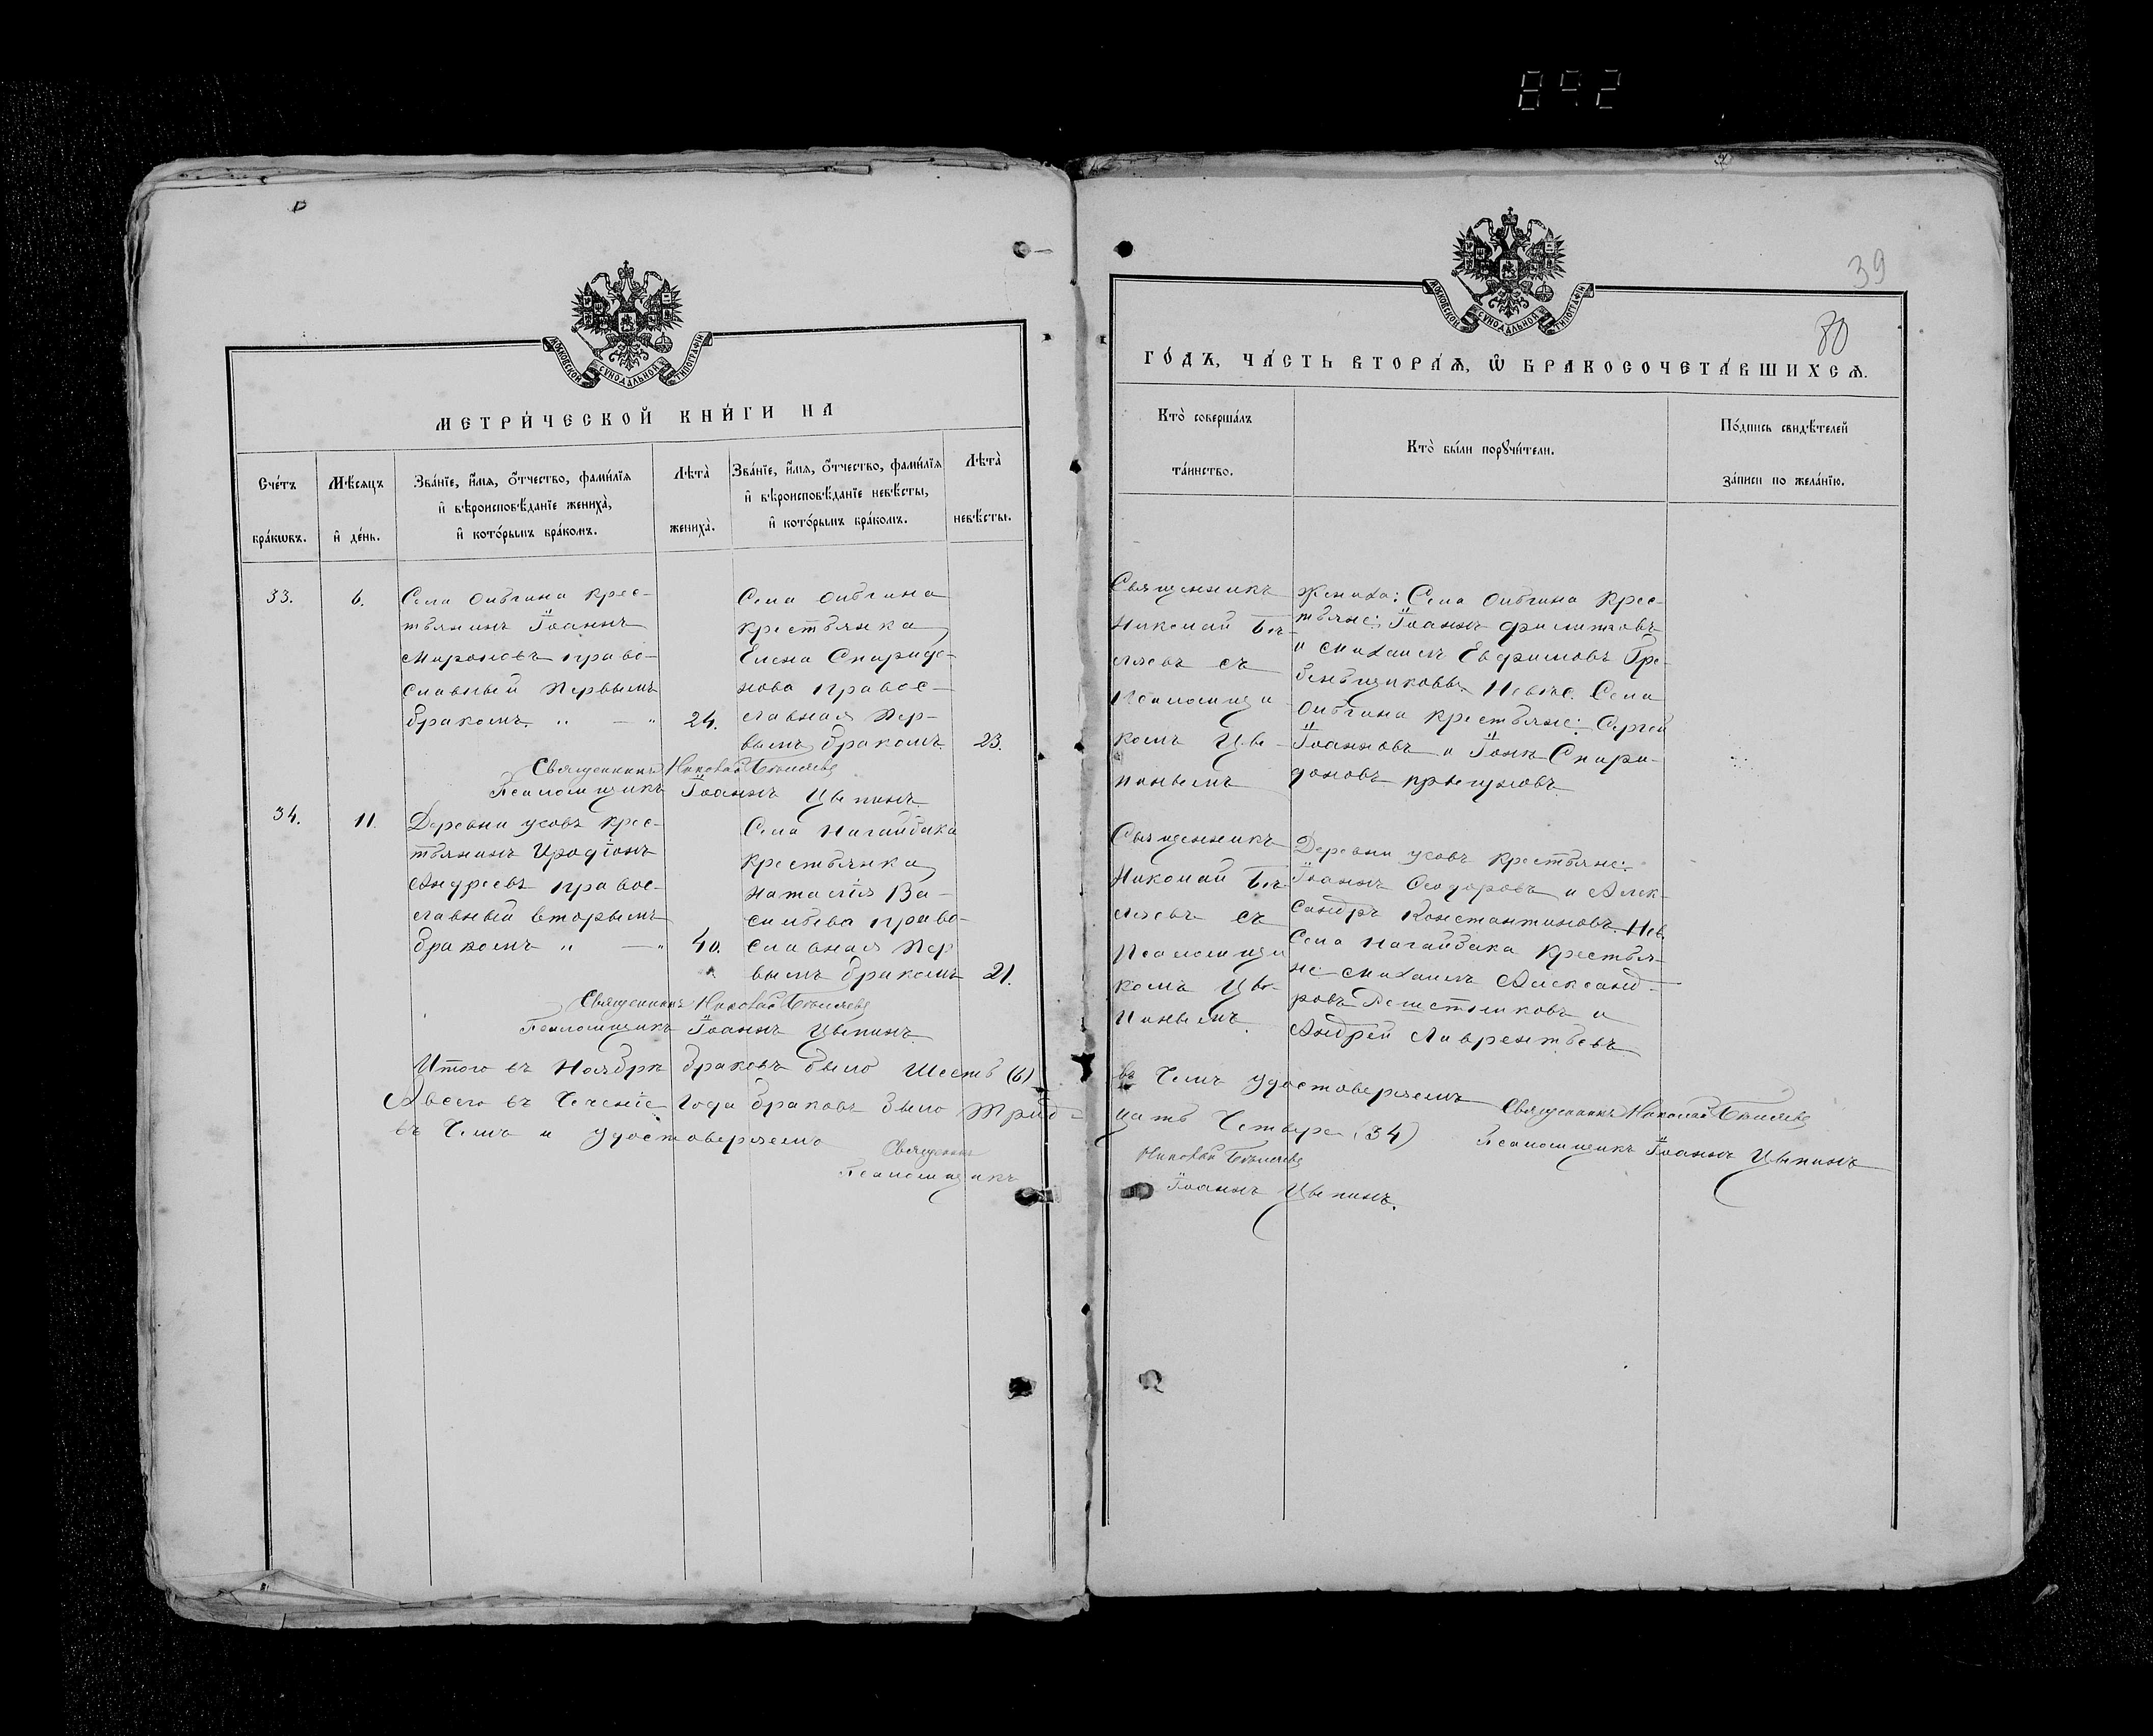 892
МОСКОВСКОЙ СѴНОДАЛЬНОЙ ТИПОГРАФІИ
МЕТРИ́ЧЕСКОЙ КНИ́ГИ НА
Сче́тъ бра́кѡвъ.
Мѣ́сяцъ и҆ де́нь.
Зва́нїе, и҆́мя, ѻ҆́тчество, фами́лїя
и҆ вѣроисповѣ́данїе жениха̀,
и҆ кото́рымъ бра́комъ.
Лѣта̀ жениха̀.
Зва́нїе, и҆́мя, ѻ҆́тчество, фами́лїя
и҆ вѣроисповѣ́данїе невѣ́сты,
и҆ кото́рымъ бра́комъ.
Лѣта̀ невѣ́сты.
33.
6.
Села крес-
тьянинъ Іоаннъ
Мироновъ право-
славный первымъ
бракомъ. „ — „
24.
Села
крестьянка
Елена Спиридо-
нова правос-
лавная пер-
вымъ бракомъ
23.
Священникъ Николай Бѣляевъ
Псаломщикъ Іоаннъ Цыпинъ.
34.
11.
Деревни Усовъ крес-
тьянинъ Иродіонъ
Андреевъ правос-
лавный вторымъ
бракомъ „ — „
40.
Села Нагайбака
крестьянка
Наталія Ва-
сильева право-
славная пер
вымъ бракомъ
21.
Священникъ Николай Бѣляевъ
Псаломщикъ Іоаннъ Цыпинъ.
Итого въ Ноябрѣ браковъ было шесть (6)
А всего въ теченіе года браковъ было трид-
въ чемъ и удостовѣряемъ
Священникъ
Псаломщикъ
МОСКОВСКОЙ СѴНОДАЛЬНОЙ ТИПОГРАФІИ
39
80
ГО́ДЪ, ЧА́СТЬ ВТОРА́Я, Ѡ҆ БРАКОСОЧЕТА́ВШИХСЯ.
Кто̀ соверша́лъ
та́инство.
Кто̀ бы́ли порꙋчи́тели.
По́дпись свидѣ́телей
за́писи по жела́нїю.
Священникъ
Николай Бѣ-
ляевъ съ
Псаломщи-
комъ Цы-
пинымъ
Жениха: Села крес-
тьяне: Іоаннъ Филиповъ
и Михаилъ Евфимовъ Гре-
беньщиковы. Невѣс. Села
крестьяне: Сергей
Іоанновъ и Іона Спири-
доновъ
Священникъ
Николай Бѣ-
ляевъ съ
Псаломщи
комъ Цы-
пинымъ.
Деревни Усовъ крестьяне:
Іоаннъ Ѳеодоровъ и Алек-
сандръ Константиновъ. Нев.
Села Нагайбака крестья-
не Михаилъ Александ-
ровъ и
Андрей Лаврентьевъ
въ чемъ удостовѣряемъ
Священникъ Николай Бѣляевъ
цать четыре (34)
Псаломщикъ Іоаннъ Цыпинъ
Николай Бѣляевъ
Іоаннъ Цыпинъ.